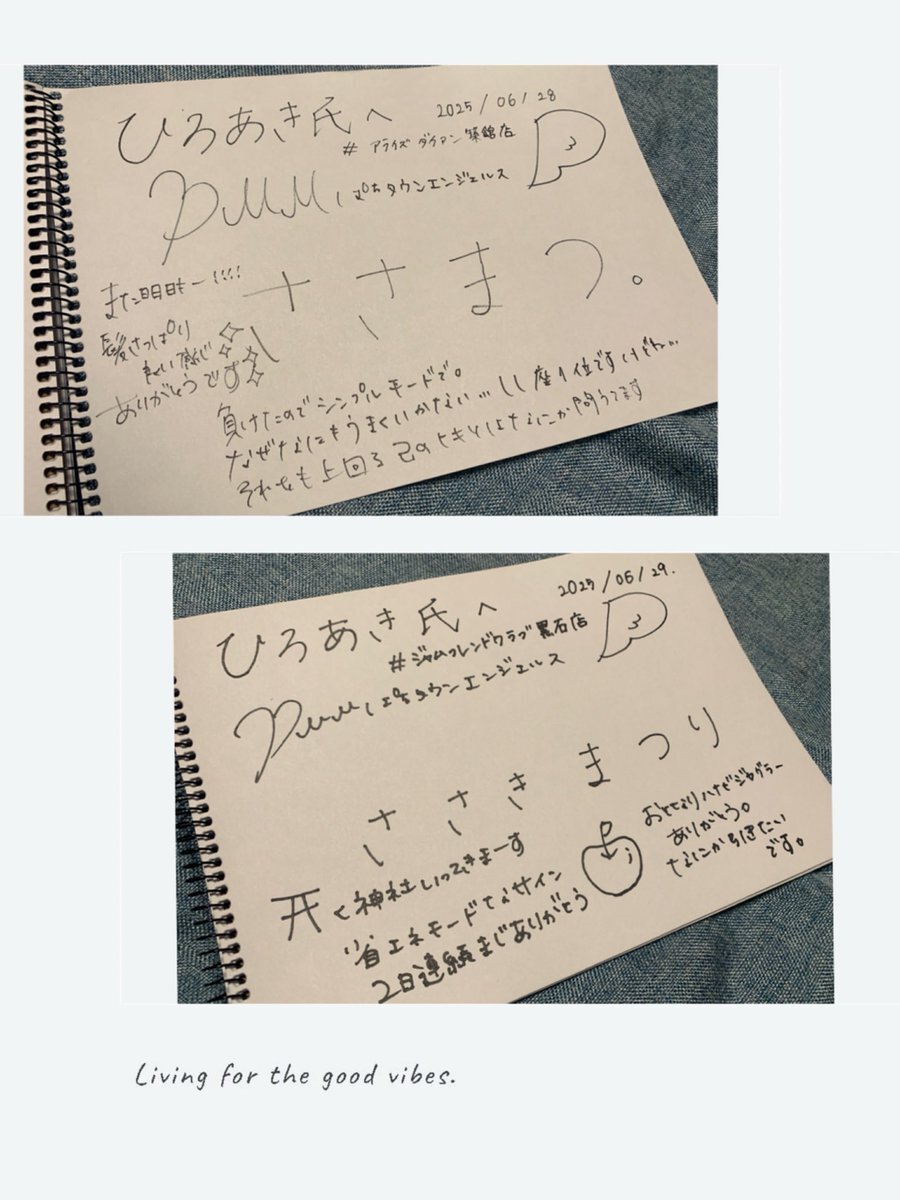 ひろあき氏へ
2025/06/28
# アライズ ダイアン築館店
ぱちタウンエンジェルス
ささまつ。
また明日ー!!!!
髪さっぱり
良い感じ
ありがとうです
負けたのでシンプルモードで。
なぜなにもうまくいかない…しし座1位ですけどね…
それをも上回る己のヒキとはなにか問うてます
ひろあき氏へ
2025/06/29.
#ジャムフレンドクラブ黒石店
ぱちタウンエンジェルス
ささきまつり
おとなりハナビジャグラー
ありがとう。
なにから打ちたい
です。
く神社いってきまーす
省エネモードなサイン
2日連続まじありがとう
Living for the good vibes.